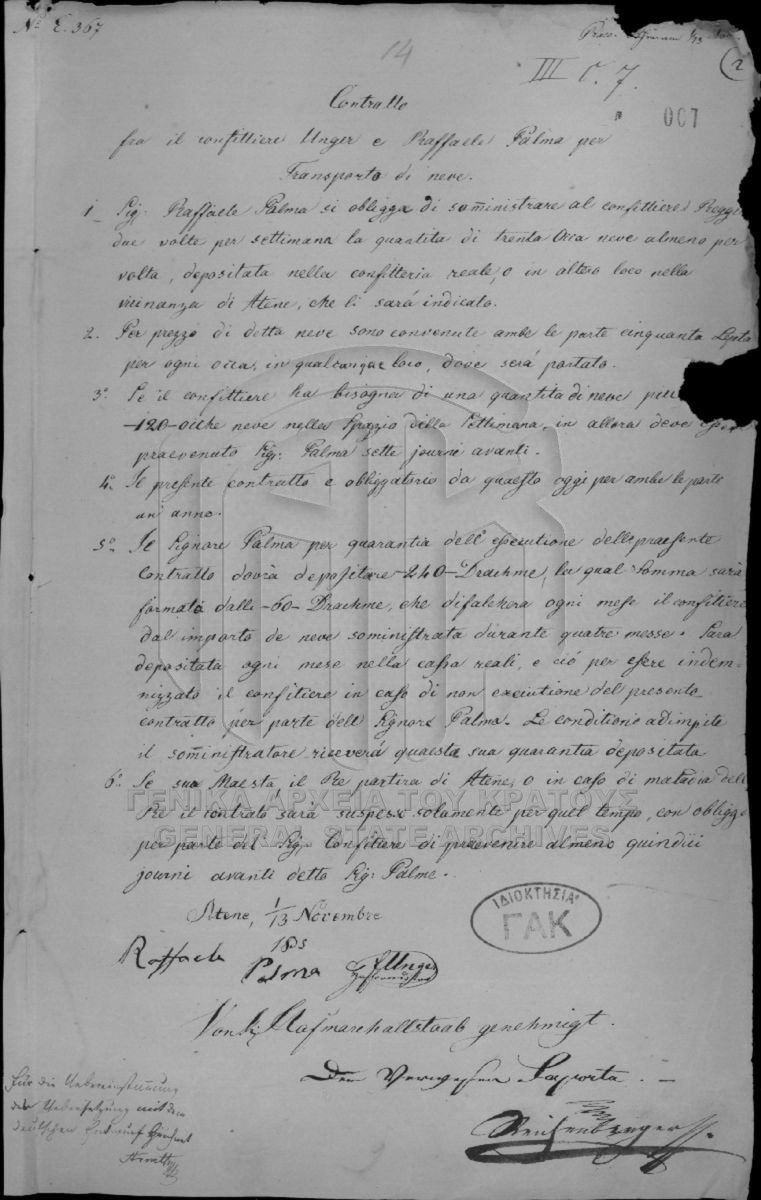 No E. 367
14
III C. 7.
2
007
Contratto
fra il confittiere Unger e Raffaele Palma per
Transporto di neve.
1 Sig: Raffaele Palma si obligga di somministrare al confittiere
due volte per settimana la quantita di trenta occa neve almeno per
volta, depositata nella confitteria reale, o in altro loco nella
vicinanza di Atene, che li sará indicato.
2. Per prezzo di detta neve sono convenute ambe le parte cinquanta Lepta
per ogni occa, in qualcunque loco, dove será portato.
3o. Se il confittiere ha bisogna di una quantita di neve piu
-120- ocche neve nella spazio della settimana, in allora deve
praevenuto Sig: Palma sette journi avanti.
4o. Il presente contratto e obliggatorio da quaesto oggi per ambe le parte
un anno.
5o. Il Signore Palma per quarantia dell' essecutione delle praesente
Contratto dovra depositare -240- Drachme, la qual somma sará
formata dalle -60- Drachme, che difalchera ogni mese il confitiere
dal importo de neve soministrata durante quatre messe. Sara
depositata ogni mese nella cassa reali, e ció per essere indem-
nizzato il confitiere in caso di non execiutione del presento
contratto per parte dell Signore Palma. Le conditione adimpite
il somministratore riceverá quaesta sua quarantia depositata
6o. Se sua Maestá il Re partira di Atene, o in caso di malatia del
Re il contrato sará suspesse solamente per quel tempo, con obligge
per parte del Sig. Confitiere di praevenire almeno quindici
journi avanti detto Sig: Palme.
ΓΕΝΙΚΑ ΑΡΧΕΙΑ ΤΟΥ ΚΡΑΤΟΥΣ
GENERAL STATE ARCHIVES
Atene, 1/13 Novembre
185
ΙΔΙΟΚΤΗΣΙΑ
ΓΑΚ
Raffaele
Palma Unger
Hofmarschallstaab genehmigt.
Der Verweser Saporta.
Für die Uebereinstimmung
der Uebersetzung mit dem
deutschen Entwurf